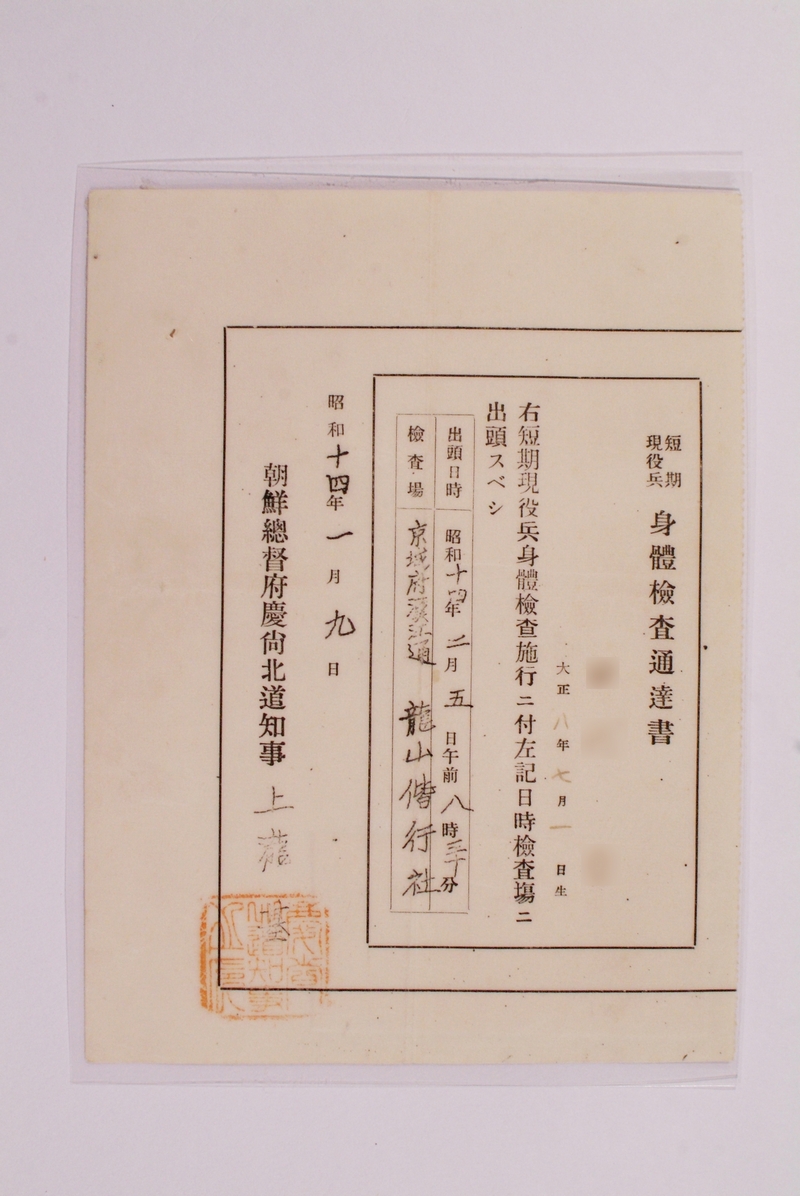 短期
現役兵
身體檢査通達書
大正八年七月一日生
右短期現役兵身體檢查施行ニ付左記日時檢査場ニ
出頭スベシ
出頭日時 昭和十四年二月五日午前八時三十分
檢査場 京城府漢江通 龍山偕行社
昭和十四年一月九日
朝鮮總督府慶尙北道知事 上